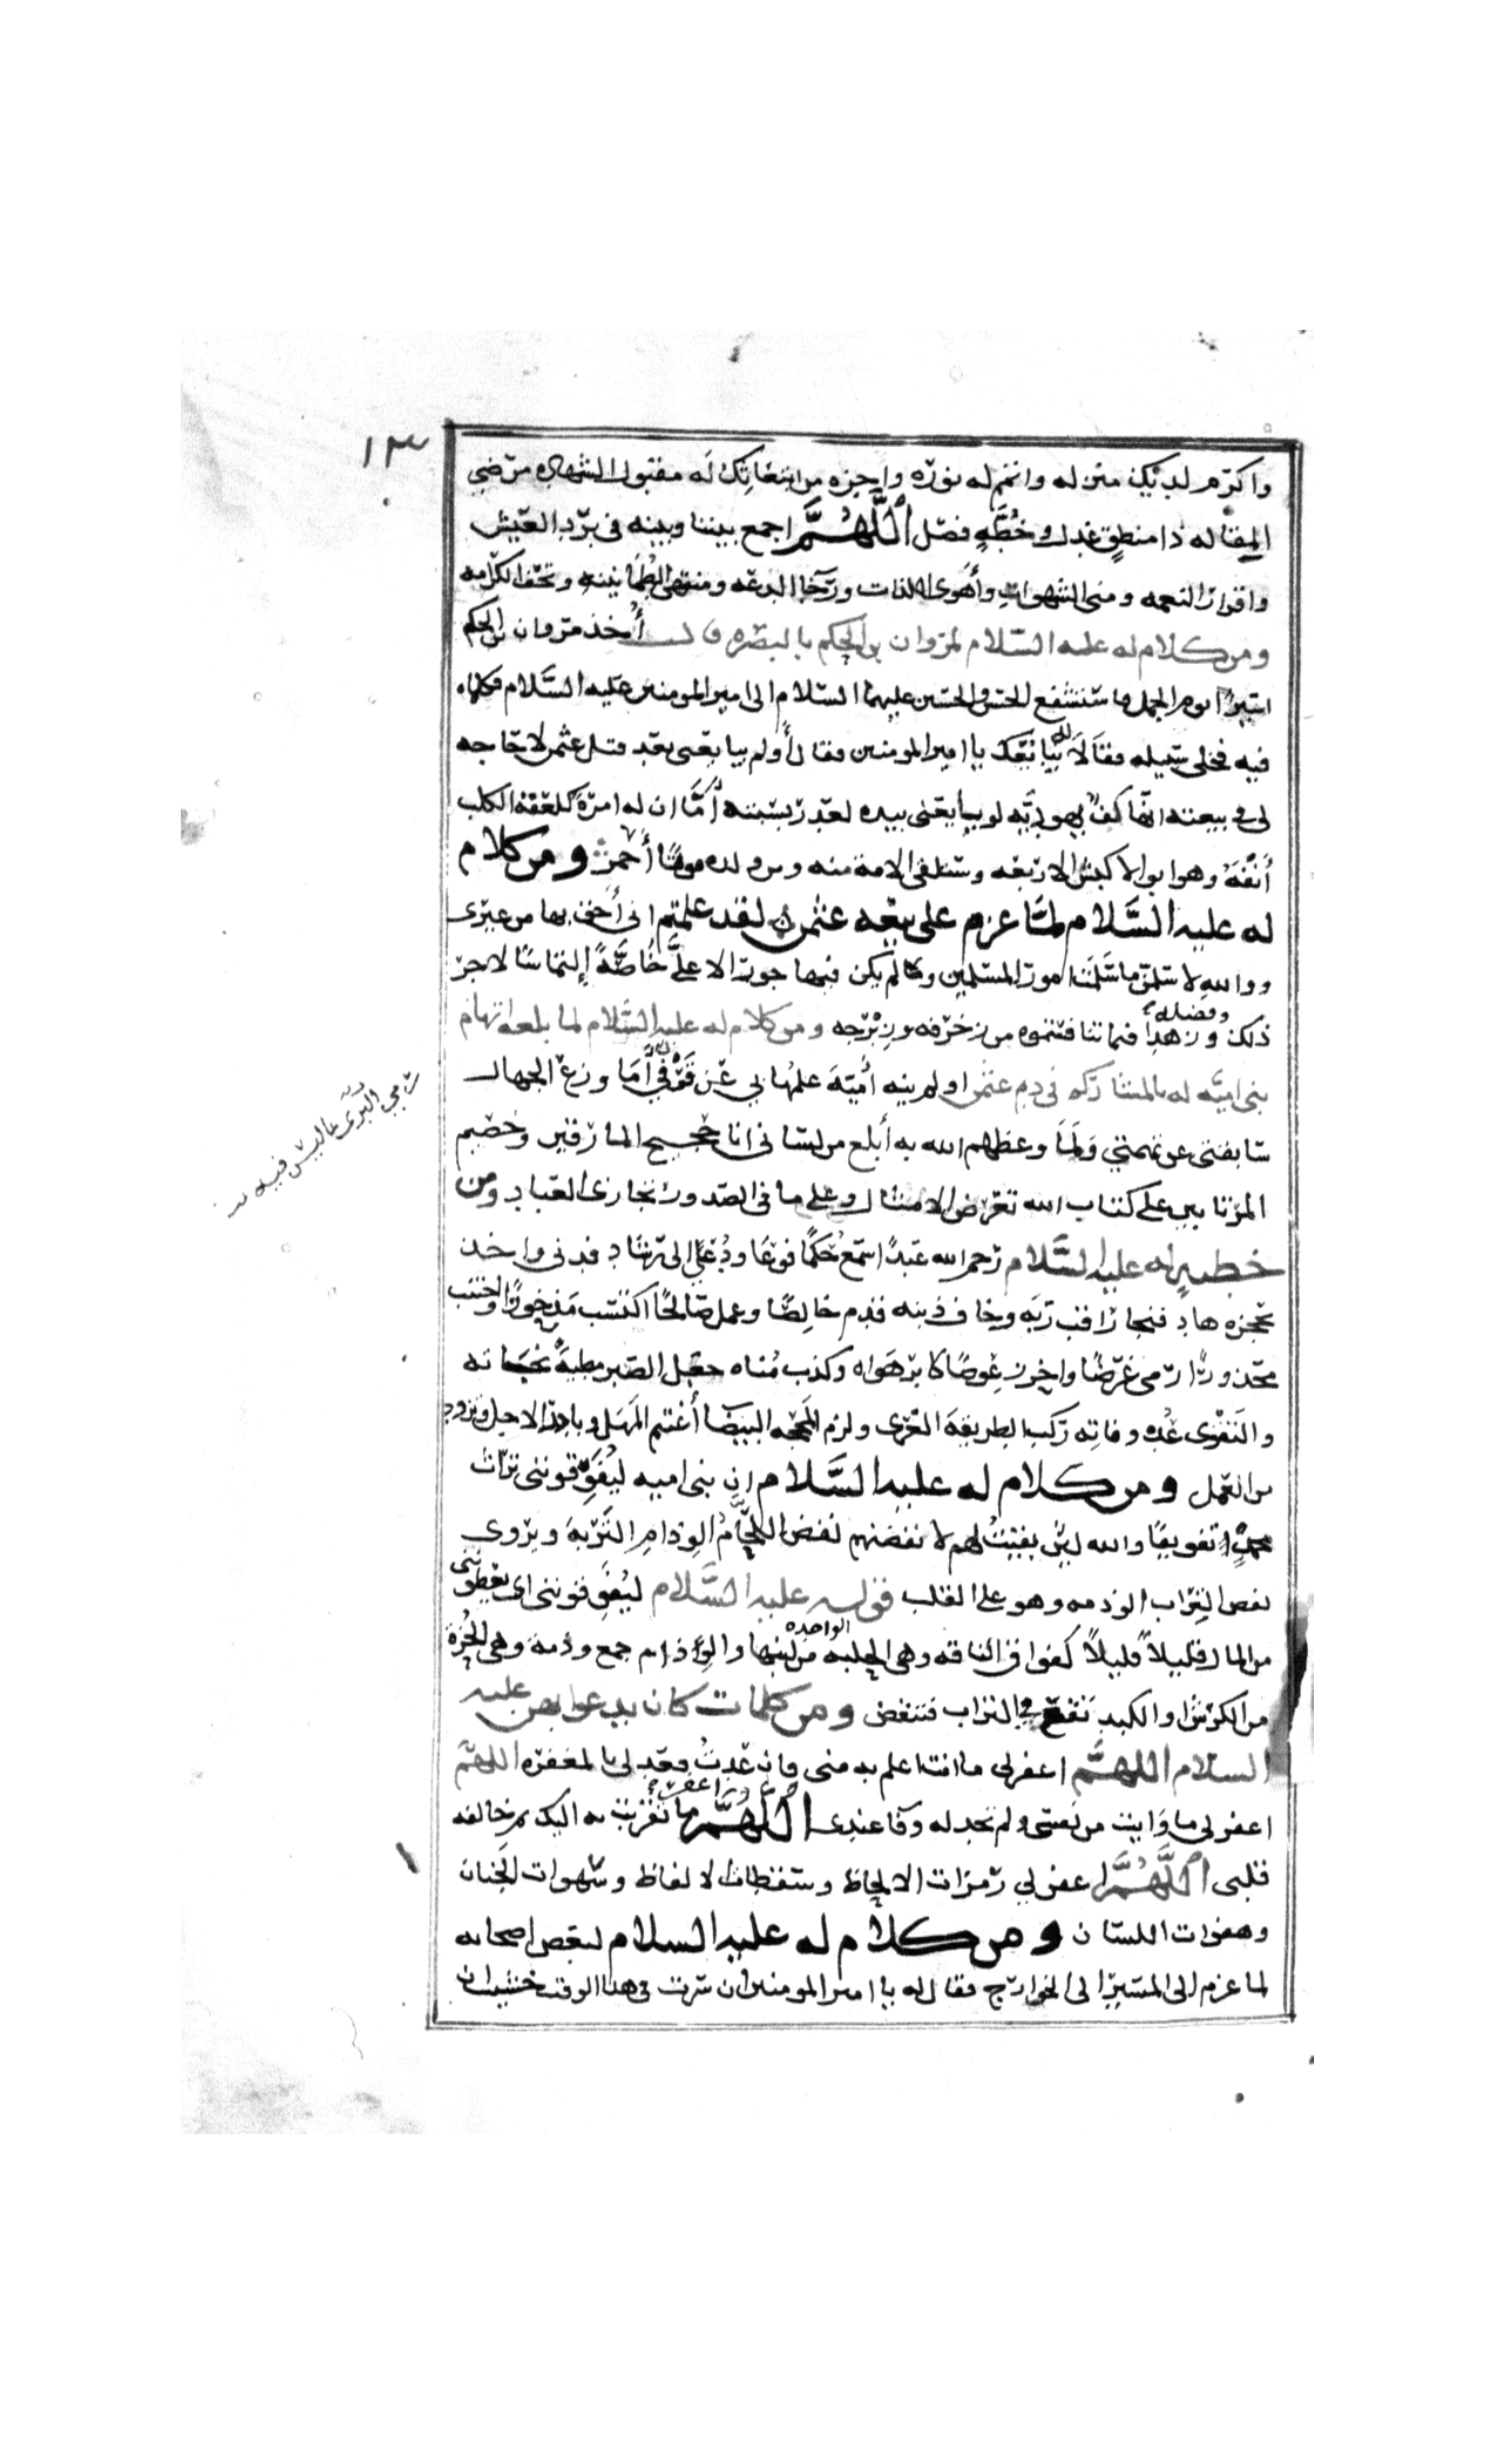 ١٣
واكرم لديك منزله واتمم له نوره واجزه من ابتعاثك له مقبول الشهاده مرضي
المقاله ذا منطق عدل وخطة فصل اللهم اجمع بيننا وبينه في برد العيش
وقرار النعمه ومنى الشهوات وأهوى اللذات ورخا الدعه ومنتهى الطمانينه وتحف الكرامه
ومن كلام له عليه السلام لمروان بن الحكم بالبصره قالـ أخذ مروان بن الحكم
اسيرا يوم الجمل فاستشفع الحسن والحسين عليهما السلام الى امير المومنين عليه السلام فكلماه
فيه فخلى سبيله فقالا له يبايعك يا امير المومنين فقال أولم يبايعني بعد قتل عثمن لا حاجه
لي في بيعته انها كف يهوديه لو بايعني بيده لغدر بسبته أما ان له امرة كلعقة الكلب
أنفه وهو ابو الاكبش الاربعه وستلقى الامة منه ومن ولده موتا أحمر ومن كلام
له عليه السلام لما عزم على بيعه عثمن لقد علمتم اني أحق بها من غيري
ووالله لاسلمن ما سلمت امور المسلمين ولم يكن فيها جور الا علي خاصة التماسا لاجر
ذلك وفضله وزهدا فيما تنافستموه من زخرفه وزبرجه ومن كلام له عليه السلام لما بلغه اتهام
بني اميه له بالمشاركه في دم عثمن اولم ينه أمية علمها بي عن قرفي أما وزع الجهال
سابقتي عن تهمتي ولما وعظهم الله به أبلغ من لساني انا حجيج المارقين وخصيم
المرتابين على كتاب الله تعرض الامثال وعلى ما في الصدور تجازى العباد ومن
خطبه له عليه السلام رحم الله عبدا سمع حكما فوعا ودعي الى رشاد فدنى واخذ
بحجزه هاد فنجا راقب ربه وخاف ذنبه قدم خالصا وعمل صالحا اكتسب مذخورا واجتنب
محذورا رمى غرضا واحرز عوضا كابر هواه وكذب مناه جعل الصبر مطية نجاته
والتقوى عده وفاته ركب الطريقة الغرى ولزم المحجه البيضا أغتنم المهل وبادر الاجل وتزود
من العمل ومن كلام له عليه السلام ان بني اميه ليفوقونني تراث
محمد تفويقا والله لئن بقيت لهم لانفضنهم نفض اللحام الوذام التربة ويروى
نفض التراب الوذمه وهو على القلب قوله عليه السلام ليفوقونني اي يعطونني
من المال قليلا قليلا كفواق الناقه وهي الحلبه الواحده من لبنها والوذام جمع وذمة وهي الحزة
من الكرش او الكبد تقع في التراب فتنفض ومن كلمات كان يدعو بهن عليه
السلام اللهم اغفر لي ما انت اعلم به مني فان عدت فعد لي بالمغفره اللهم
اغفر لي ما وايت من نفسي ولم تجد له وفا عندي اللهم اغفر لي ما تقربت به اليك ثم خالفه
قلبي اللهم اغفر لي رمزات الالحاظ وسقطات الالفاظ وشهوات الجنان
وهفوات اللسان ومن كلام له عليه السلام لبعض اصحابه
لما عزم الى المسير الى الخوارج فقال له يا امير المومنين ان سرت في هذا الوقت خشيت ان
رمي البرى بما ليس فيه